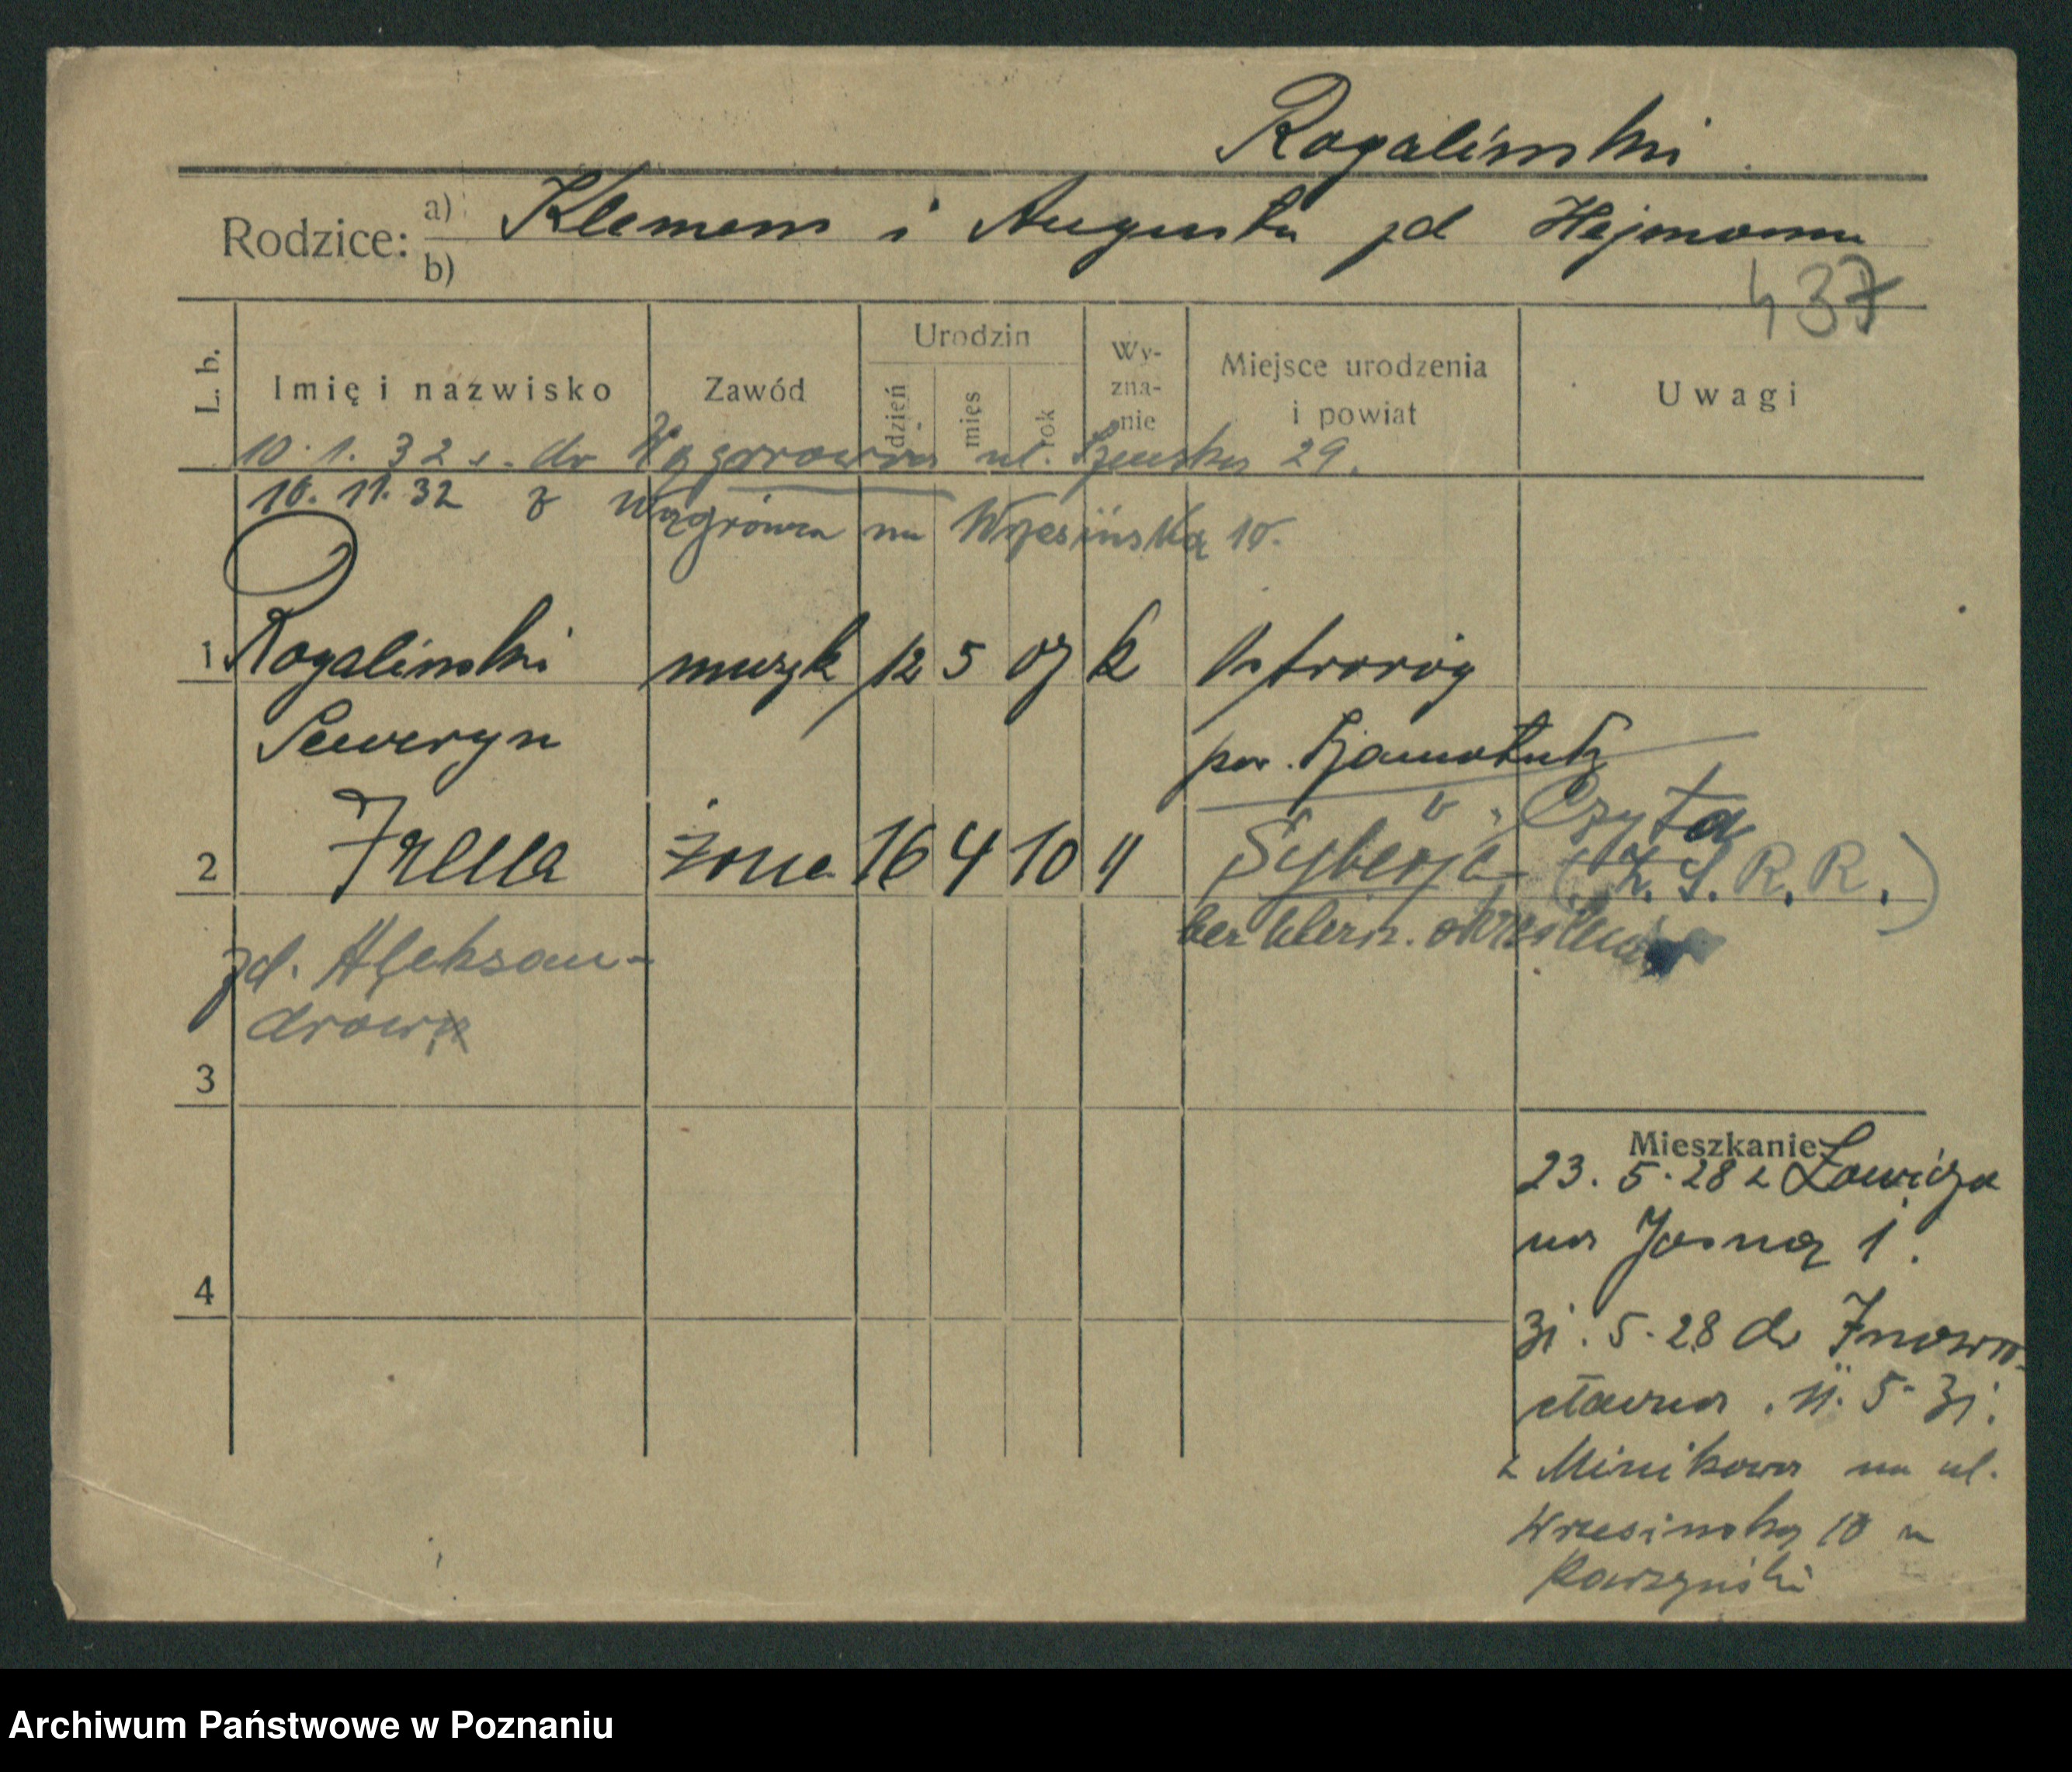 Rogaliński
Rodzice: a) Klemens i Augusta zd Hejmann
b)
437
L. b. Imię i nazwisko Zawód Urodzin dzień mięs rok Wy-zna-nie Miejsce urodzenia i powiat Uwagi
10. 1. 32 r. do Wągrowca ul. 29.
10. 11. 32 z Wągrówca na Wrzesińską 10.
1 Rogaliński muzyk 12 5 07 k Ostroróg
Seweryn pow. Szamotuły
Czyta
2 Irena żona 16 4 10 " Syberja (Z. S. R. R.)
bez bliższ. określenia
zd. Aleksan-
drow
3
Mieszkanie
23. 5. 28 z Łowicza
na Jasną 1.
4
31. 5. 28 do Inowro-
cławia. 11. 5. 31.
z Minikowa na ul.
Wrzesińską 10 u
Karzyński
Archiwum Państwowe w Poznaniu